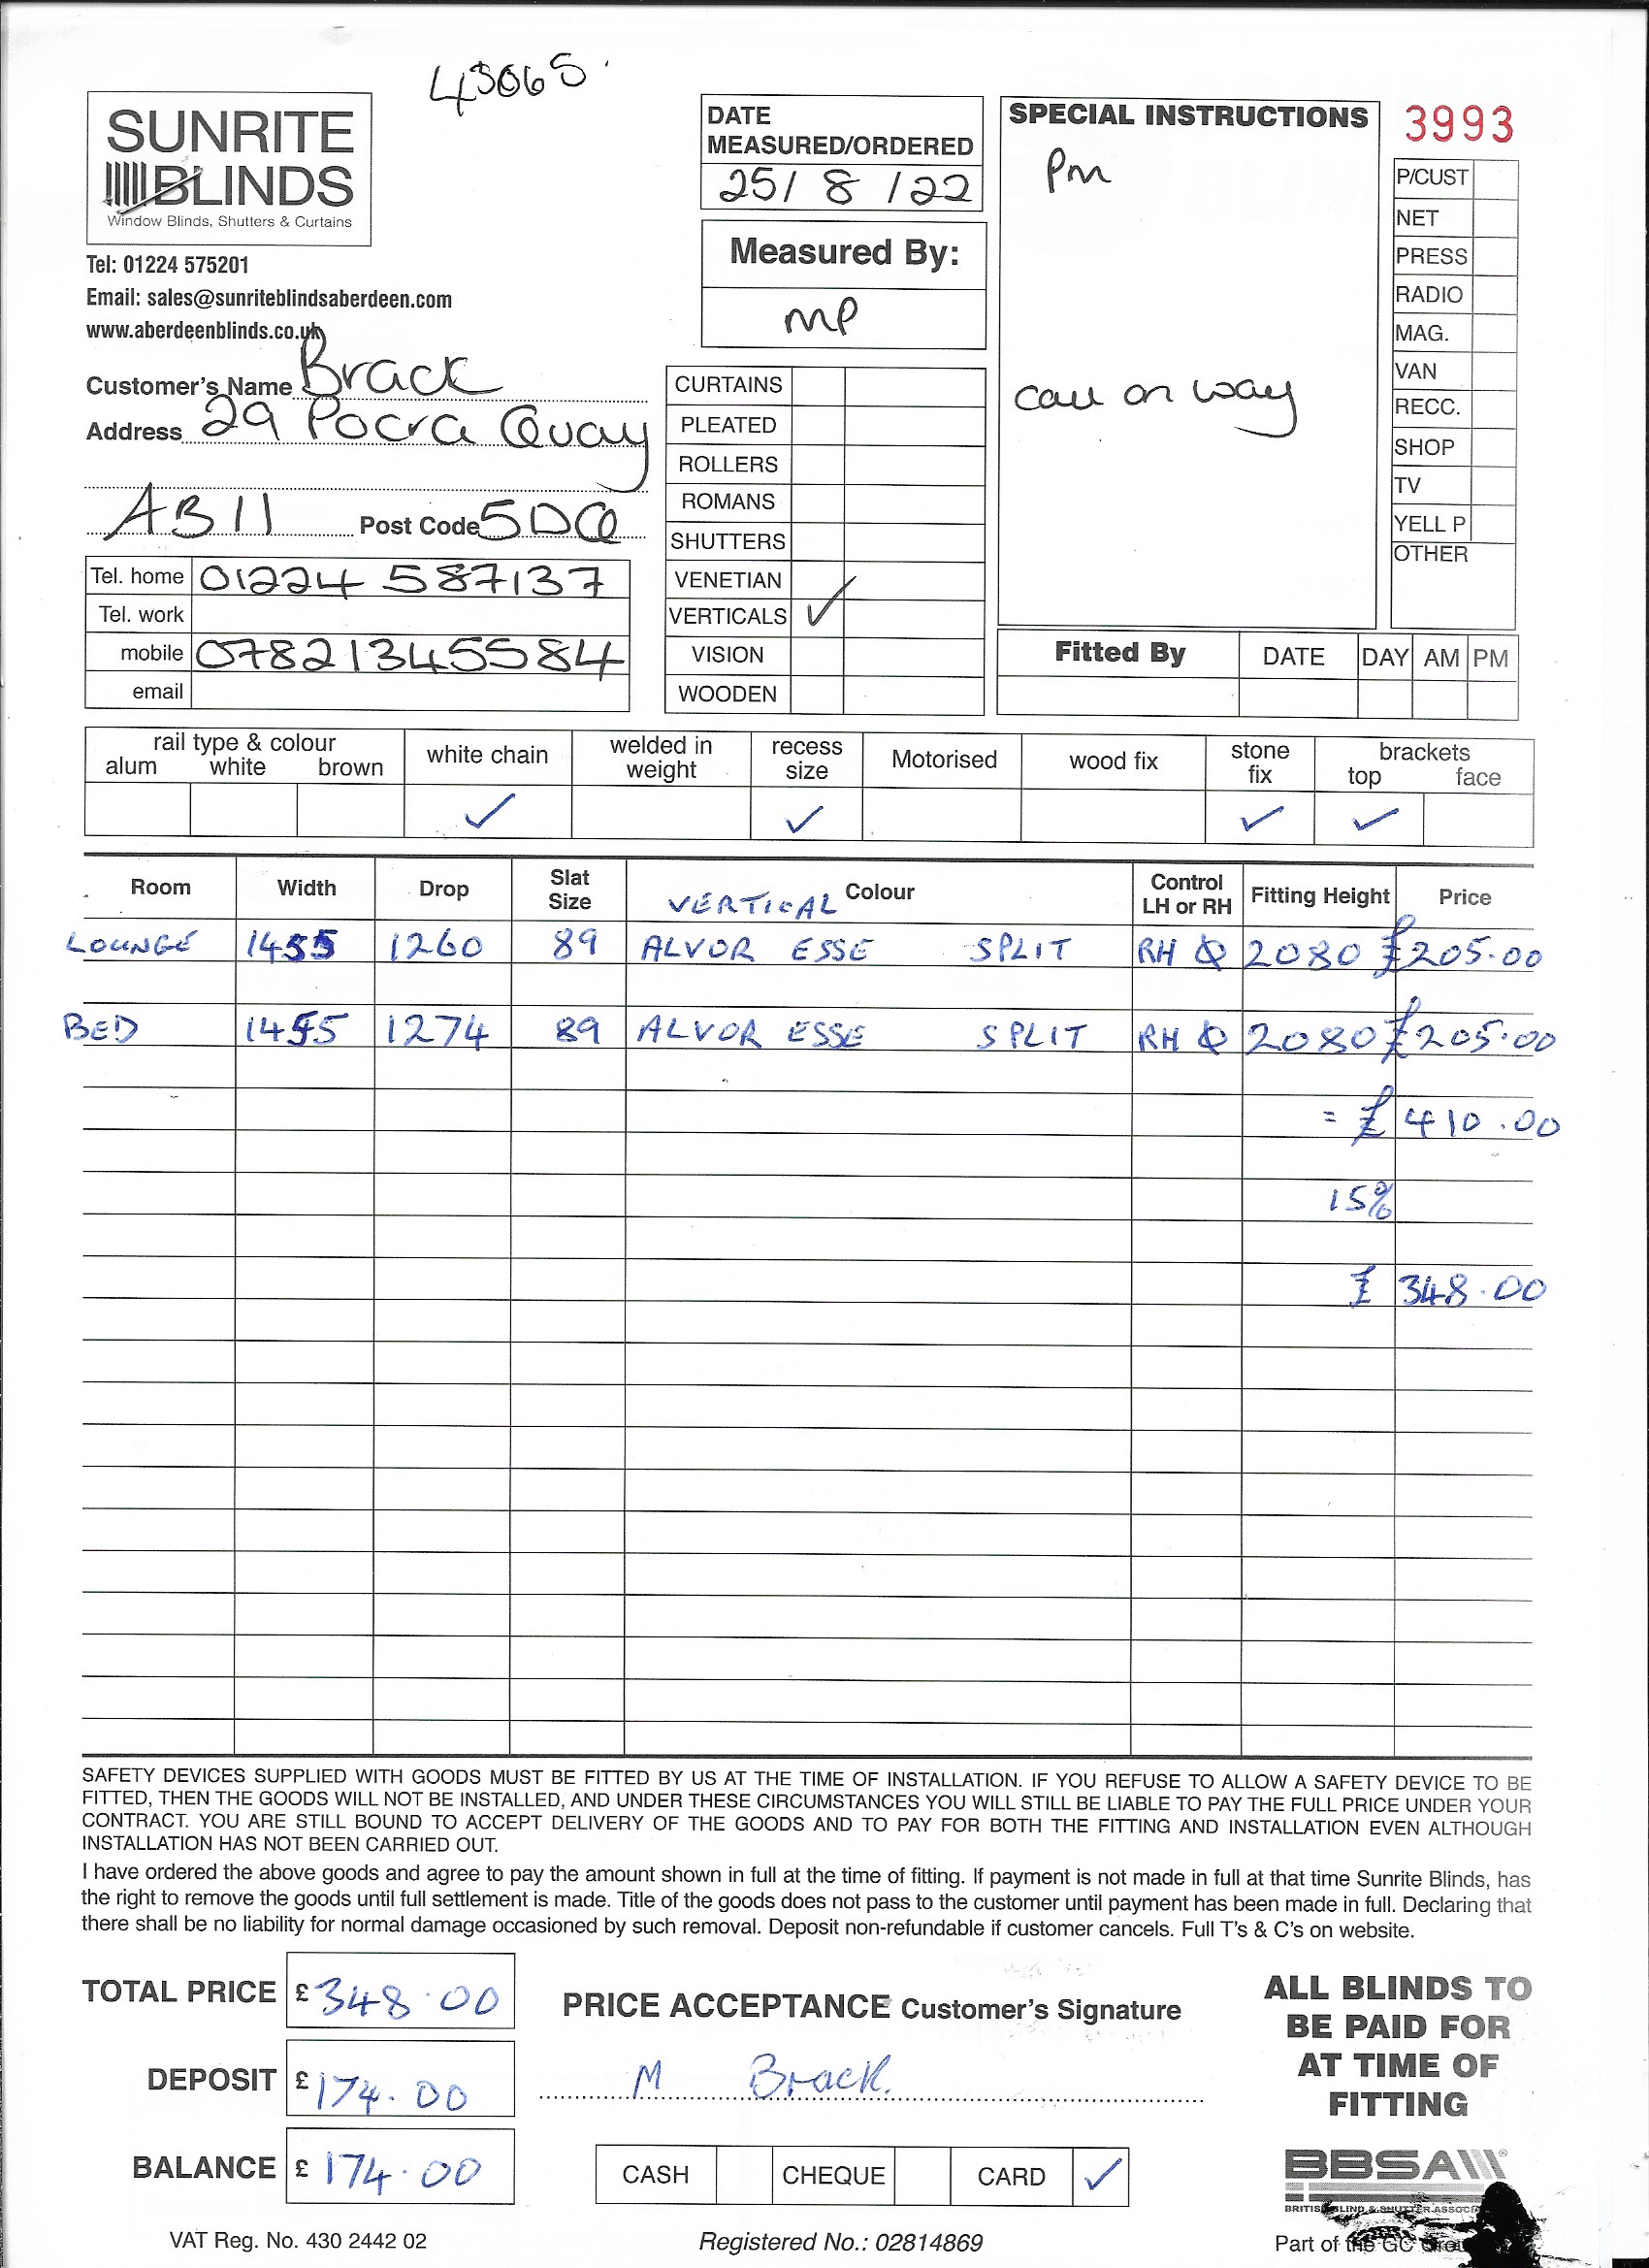 43065
SUNRITE
BLINDS
Window Blinds, Shutters & Curtains
Tel: 01224 575201
Email: sales@sunriteblindsaberdeen.com
www.aberdeenblinds.co.uk
Customer's Name Brack
Address 29 Pocra Quay
AB11 Post Code 5DQ
Tel. home 01224 587137
Tel. work
mobile 07821345584
email
DATE
MEASURED/ORDERED
25/ 8 /22
Measured By:
MP
CURTAINS
PLEATED
ROLLERS
ROMANS
SHUTTERS
VENETIAN
VERTICALS ✓
VISION
WOODEN
SPECIAL INSTRUCTIONS
Pm
call on way
3993
P/CUST
NET
PRESS
RADIO
MAG.
VAN
RECC.
SHOP
TV
YELL P
OTHER
Fitted By DATE DAY AM PM
rail type & colour
alum white brown
white chain ✓
welded in
weight
recess
size ✓
Motorised
wood fix
stone
fix ✓
brackets
top face
✓
Room Width Drop Slat Size VERTICAL Colour Control LH or RH Fitting Height Price
LOUNGE 1455 1260 89 ALVOR ESSE SPLIT RH 2080 £205.00
BED 1455 1274 89 ALVOR ESSE SPLIT RH 2080 £205.00
= £ 410.00
15%
£ 348.00
SAFETY DEVICES SUPPLIED WITH GOODS MUST BE FITTED BY US AT THE TIME OF INSTALLATION. IF YOU REFUSE TO ALLOW A SAFETY DEVICE TO BE
FITTED, THEN THE GOODS WILL NOT BE INSTALLED, AND UNDER THESE CIRCUMSTANCES YOU WILL STILL BE LIABLE TO PAY THE FULL PRICE UNDER YOUR
CONTRACT. YOU ARE STILL BOUND TO ACCEPT DELIVERY OF THE GOODS AND TO PAY FOR BOTH THE FITTING AND INSTALLATION EVEN ALTHOUGH
INSTALLATION HAS NOT BEEN CARRIED OUT.
I have ordered the above goods and agree to pay the amount shown in full at the time of fitting. If payment is not made in full at that time Sunrite Blinds, has
the right to remove the goods until full settlement is made. Title of the goods does not pass to the customer until payment has been made in full. Declaring that
there shall be no liability for normal damage occasioned by such removal. Deposit non-refundable if customer cancels. Full T's & C's on website.
TOTAL PRICE £ 348.00
DEPOSIT £ 174.00
BALANCE £ 174.00
PRICE ACCEPTANCE Customer's Signature
M Brack.
CASH CHEQUE CARD ✓
ALL BLINDS TO
BE PAID FOR
AT TIME OF
FITTING
BBSA
VAT Reg. No. 430 2442 02
Registered No.: 02814869
Part of the GC